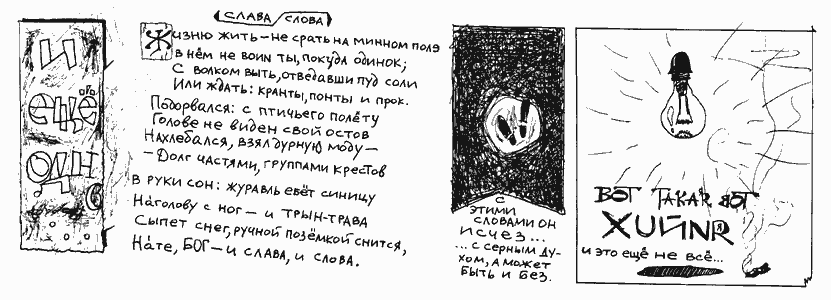 И
ЕЩЁ
ОДН
СЛАВА/СЛОВА
ЖИЗНЮ ЖИТЬ – НЕ СРАТЬ НА МИННОМ ПОЛЕ
В НЁМ НЕ ВОИН ТЫ, ПОКУДА ОДИНОК;
С ВОЛКОМ ВЫТЬ, ОТВЕДАВШИ ПУД СОЛИ
ИЛИ ЖДАТЬ: КРАНТЫ, ПОНТЫ И ПРОК.
ПОДОРВАЛСЯ: С ПТИЧЬЕГО ПОЛЁТУ
ГОЛОВЕ НЕ ВИДЕН СВОЙ ОСТОВ
НАХЛЕБАЛСЯ, ВЗЯЛ ДУРНУЮ МОДУ –
– ДОЛГ ЧАСТЯМИ, ГРУППАМИ КРЕСТОВ
В РУКИ СОН: ЖУРАВЛЬ ЕБЁТ СИНИЦУ
НАГОЛОВУ С НОГ – И ТРЫН-ТРАВА
СЫПЕТ СНЕГ, РУЧНОЙ ПОЗЁМКОЙ СНИТСЯ,
НАТЕ, БОГ – И СЛАВА, И СЛОВА.
С
ЭТИМИ
СЛОВАМИ ОН
ИСЧЕЗ...
...С СЕРНЫМ ДУ-
ХОМ, А МОЖЕТ
БЫТЬ И БЕЗ.
ВОТ ТАКАЯ ВОТ
ХУЙНЯ
И ЭТО ЕЩЁ НЕ ВСЁ...